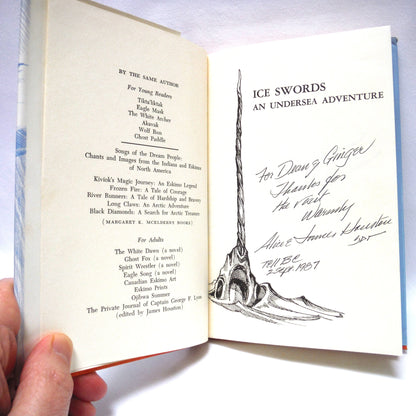 BY THE SAME AUTHOR
For Young Readers
Tikta'liktak
Eagle Mask
The White Archer
Akavak
Wolf Run
Ghost Paddle
Songs of the Dream People:
Chants and Images from the Indians and Eskimos
of North America
Kiviok's Magic Journey: An Eskimo Legend
Frozen Fire: A Tale of Courage
River Runners: A Tale of Hardship and Bravery
Long Claws: An Arctic Adventure
Black Diamonds: A Search for Arctic Treasure
(MARGARET K. MCELDERRY BOOKS)
For Adults
The White Dawn (a novel)
Ghost Fox (a novel)
Spirit Wrestler (a novel)
Eagle Song (a novel)
Canadian Eskimo Art
Eskimo Prints
Ojibwa Summer
The Private Journal of Captain George F. Lyon
(edited by James Houston)
ICE SWORDS
AN UNDERSEA ADVENTURE
For Dean & Ginger
Thanks for
the visit
Warmly
Alice & James Houston
Tlell BC
2 Sept 1987